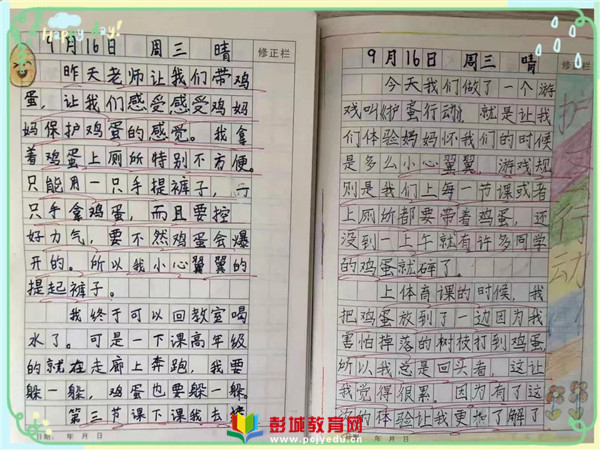 happy day!
9月16日 周三 晴
修正栏
昨天老师让我们带鸡
蛋,让我们感受感受鸡妈
妈保护鸡蛋的感觉。我拿
着鸡蛋上厕所特别不方便。
只能用一只手提裤子,一
只手拿鸡蛋,而且要控
好力气,要不然鸡蛋会爆
开的。所以我小心翼翼的
提起裤子。
我终于可以回教室喝
水了。可是一下课高年级
的就在走廊上奔跑,我要
躲一躲,鸡蛋也要躲一躲。
第三节课下课我去
日期: 年 月 日
9月16日 周三 晴
修正栏
今天我们做了一个游
戏叫《护蛋行动》。就是让我
们体验妈妈怀我们的时候
是多么小心翼翼,游戏规
则是我们上每一节课或者
上厕所都要带着鸡蛋,还
没到一上午就有许多同学
的鸡蛋就碎了。
上体育课的时候,我
把鸡蛋放到了一边因为我
害怕掉落的树枝打到鸡蛋
所以我总是回头看,这让
我觉得很累。因为有了这
次的体验让我更加了解了
年 月 日
护蛋行动
彭城教育网
www.pcjyedu.cn